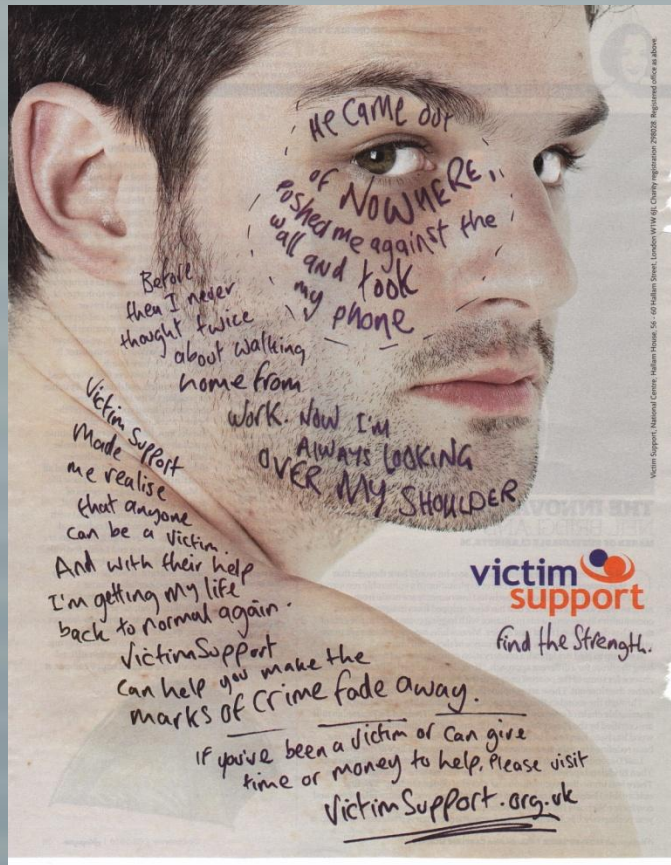 He came out
of NOWHERE,
pushed me against the
wall and took
my phone
Before
then I never
thought twice
about walking
home from
work. NOW I'm
ALWAYS LOOKING
OVER MY SHOULDER
Victim Support
Made
me realise
that anyone
can be a victim.
And with their help
I'm getting my life
back to normal again.
VictimSupport
can help you make the
marks of crime fade away.
If you've been a victim or can give
time or money to help, Please visit
VictimSupport.org.uk
victim
support
find the Strength.
Victim Support, National Centre, Hallam House, 56 – 60 Hallam Street, London W1W 6JL Charity registration 298028. Registered office as above.